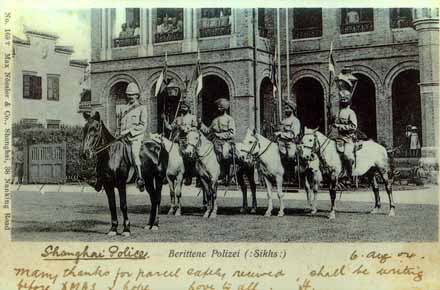 No. 1657 Max Nössler & Co., Shanghai, 38 Nanking Road
Shanghai Police. Berittene Polizei (: Sikhs :) 6. Aug 04.
Many thanks for parcel safely received shall be writing
before XMAS I hope love to all.